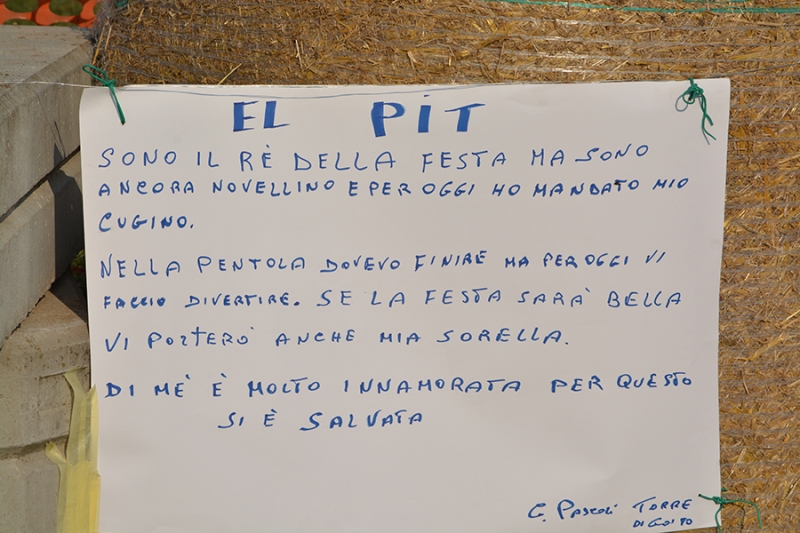 EL PIT
SONO IL RÈ DELLA FESTA MA SONO
ANCORA NOVELLINO E PER OGGI HO MANDATO MIO
CUGINO.
NELLA PENTOLA DOVEVO FINIRE MA PER OGGI VI
FACCIO DIVERTIRE. SE LA FESTA SARÀ BELLA
VI PORTERÒ ANCHE MIA SORELLA.
DI MÈ È MOLTO INNAMORATA PER QUESTO
SI È SALVATA
G. PASCOLI TORRE
DI GOITO